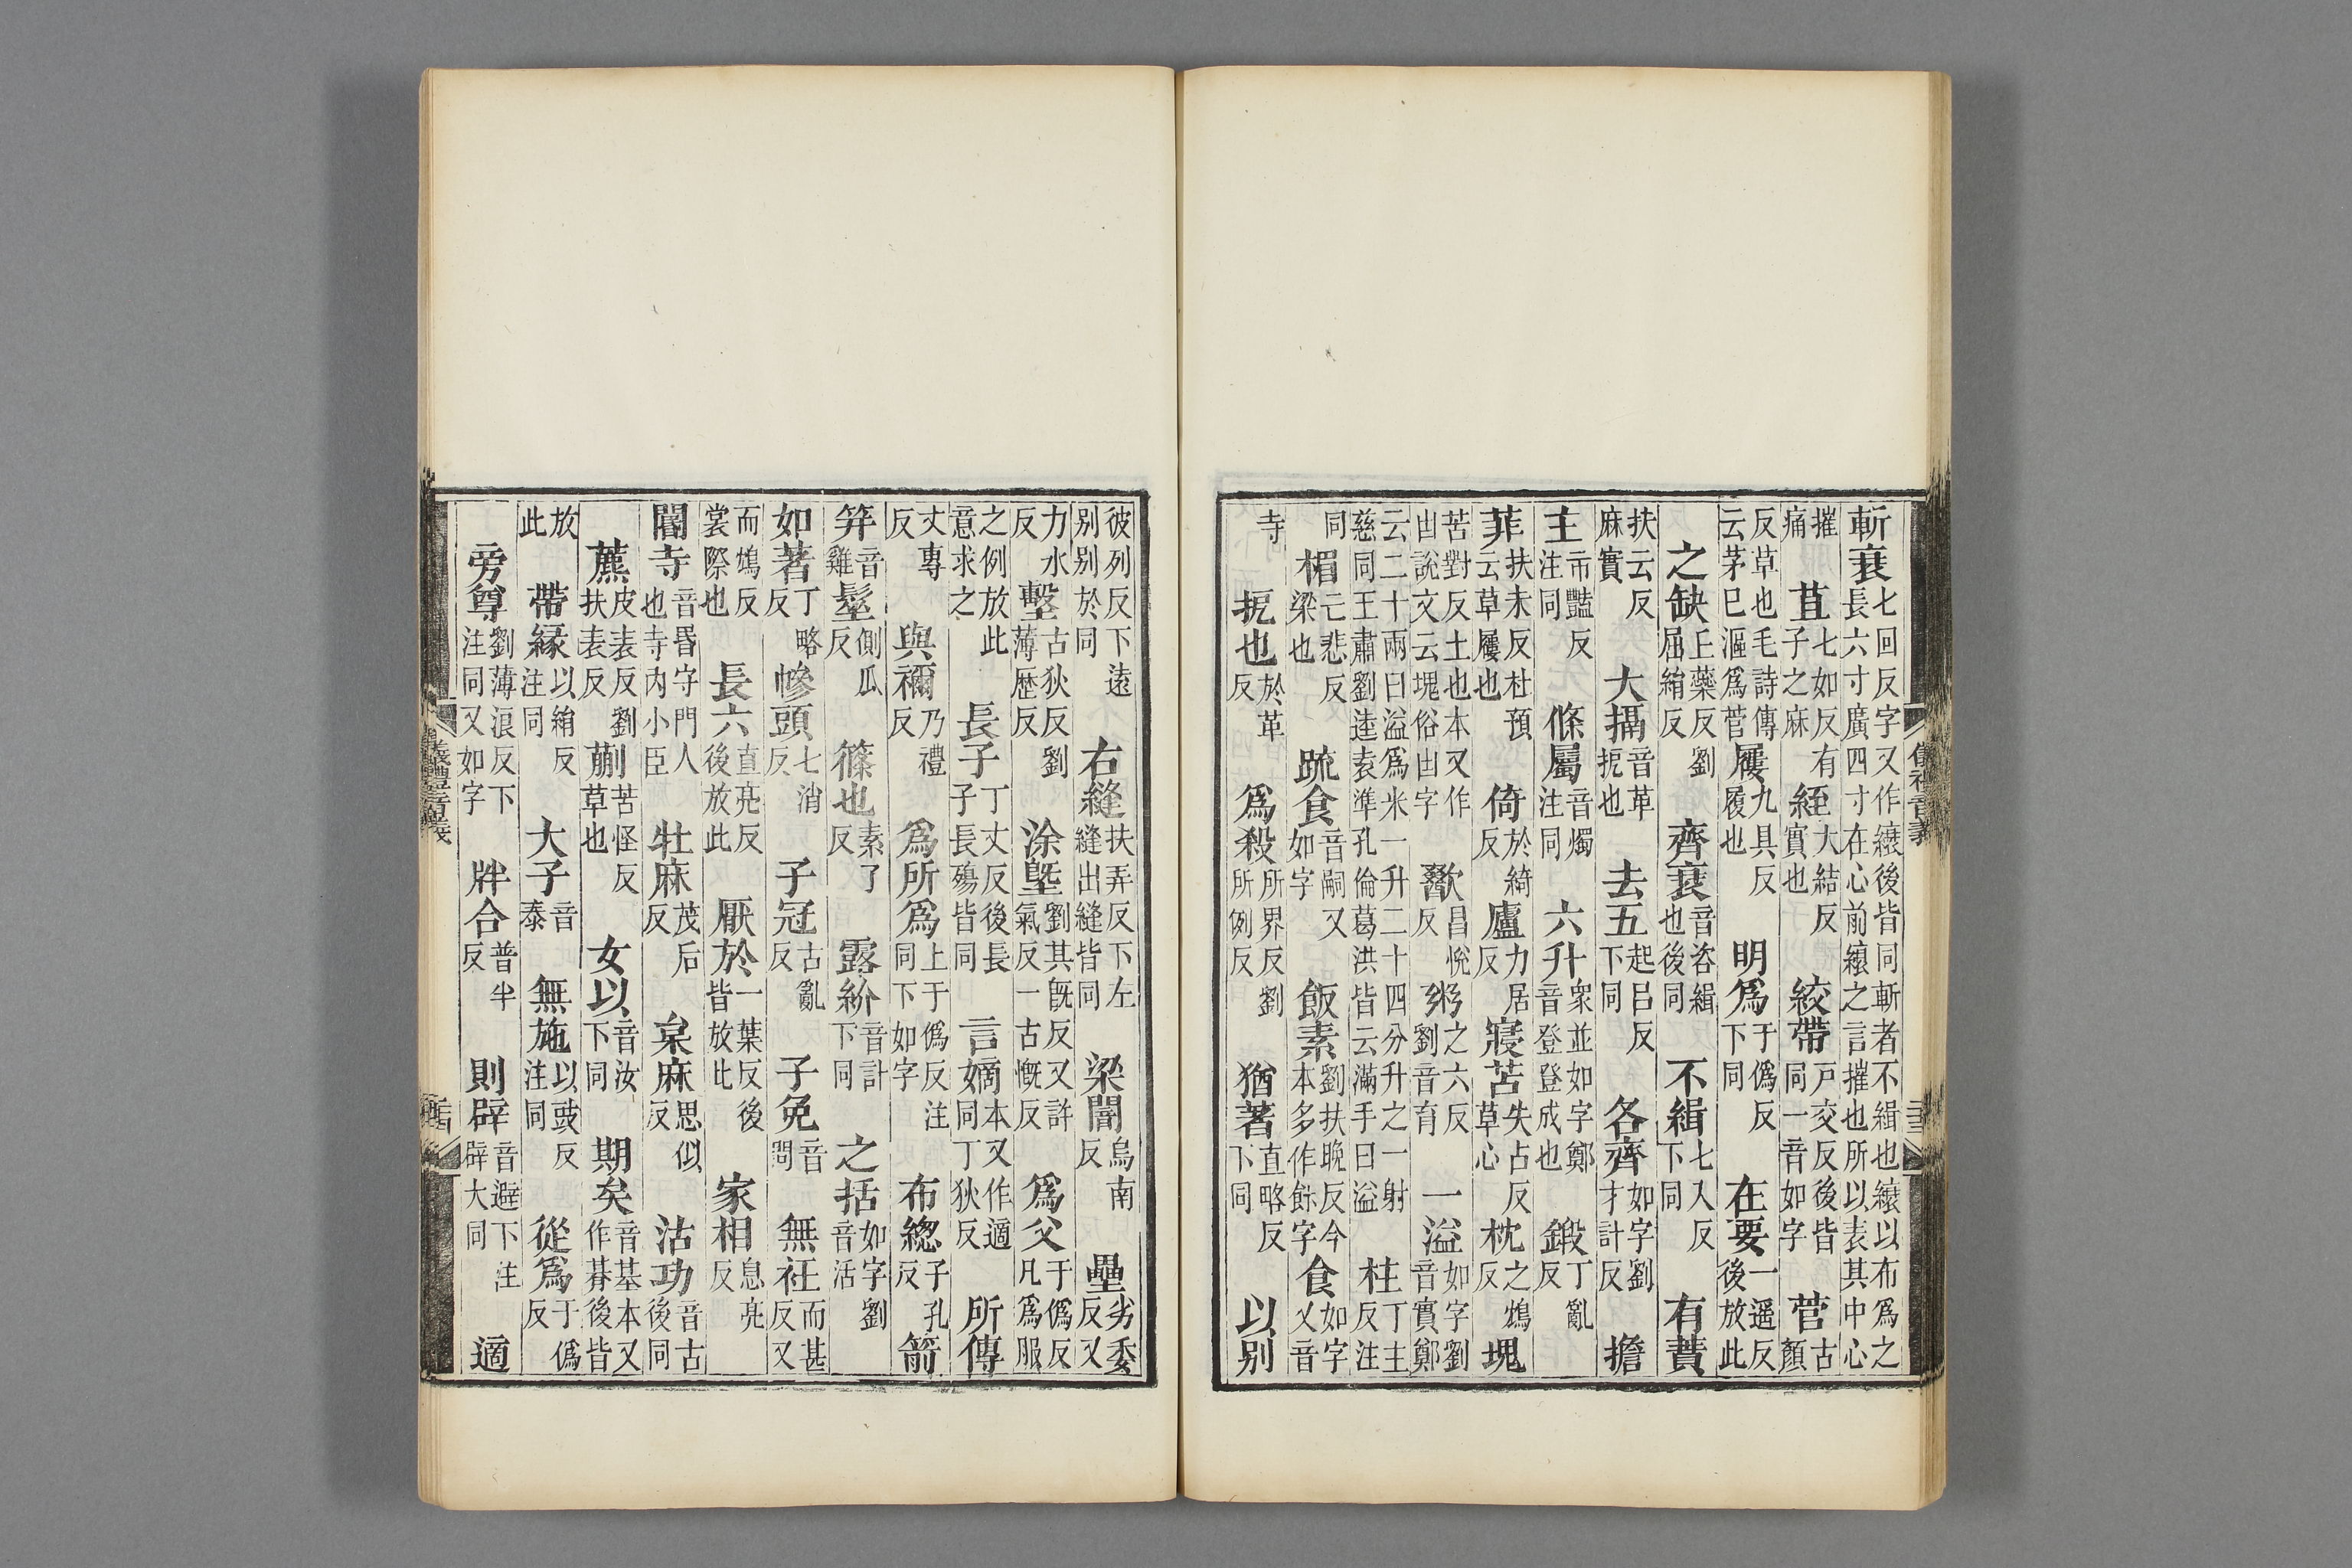 斬衰七回反字又作縗後皆同斬者不緝也縗以布爲之長六寸廣四寸在心前縗之言摧也所以表其中心
摧痛苴七如反有子之麻絰大結反實也絞帶戸交反後皆同一音如字菅古顏
反草也毛詩傳云茅巳漚爲菅屨九具反履也明爲于僞反下同在要一遥反後放此
之缺丘藥反劉屈絹反齊衰音咨緝也後同不緝七入反下同有蕡
扶云反麻實大搹音革扼也去五起呂反下同各齊如字劉才計反擔
主市豔反注同條屬音燭注同六升衆並如字鄭音登登成也鍛丁亂反
菲扶未反杜預云草屨也倚於綺反廬力居反寢苫失占反草心枕之鴆反塊
苦對反土也本又作凷說文云塊俗凷字歠昌悅反粥之六反劉音育一溢如字劉音實鄭
云二十兩曰溢爲米一升二十四分升之一射慈同王肅劉逵袁準孔倫葛洪皆云滿手曰溢柱丁主反注
同楣亡悲反梁也疏食音嗣又如字飯素劉扶晚反今本多作餘字食如字又音
寺扼也於革反爲殺所界反劉所例反猶著直略反下同以别
彼列反下遠别别於同右縫扶弄反下左縫出縫皆同梁闇烏南反壘劣委反又
力水反墼古狄反劉薄歷反涂墍劉其旣反又許氣反一古慨反爲父于僞反凡爲服
之例放此意求之長子丁丈反後長子長殤皆同言嫡本又作適同丁狄反所傳
丈專反與禰乃禮反爲所爲上于僞反注同下如字布緫子孔反箭
笄音雞髽側瓜反篠也素了反露紒音計下同之括如字劉音活
如著丁略反幓頭七消反子冠古亂反子免音問無衽而甚反又
而鴆反裳際也長六直亮反後放此厭於一葉反後皆放此家相息亮反
閽寺音昏守門人也寺内小臣牡麻茂后反枲麻思似反沽功音古後同
藨皮表反劉扶表反蒯苦怪反草也女以音汝下同期矣音基本又作朞後皆
放此帶縁以絹反注同大子音泰無施以豉反注同從爲于僞反
旁尊劉薄浪反下注同又如字牉合普半反則辟音避下注辟大同適
儀禮音義
儀禮音義